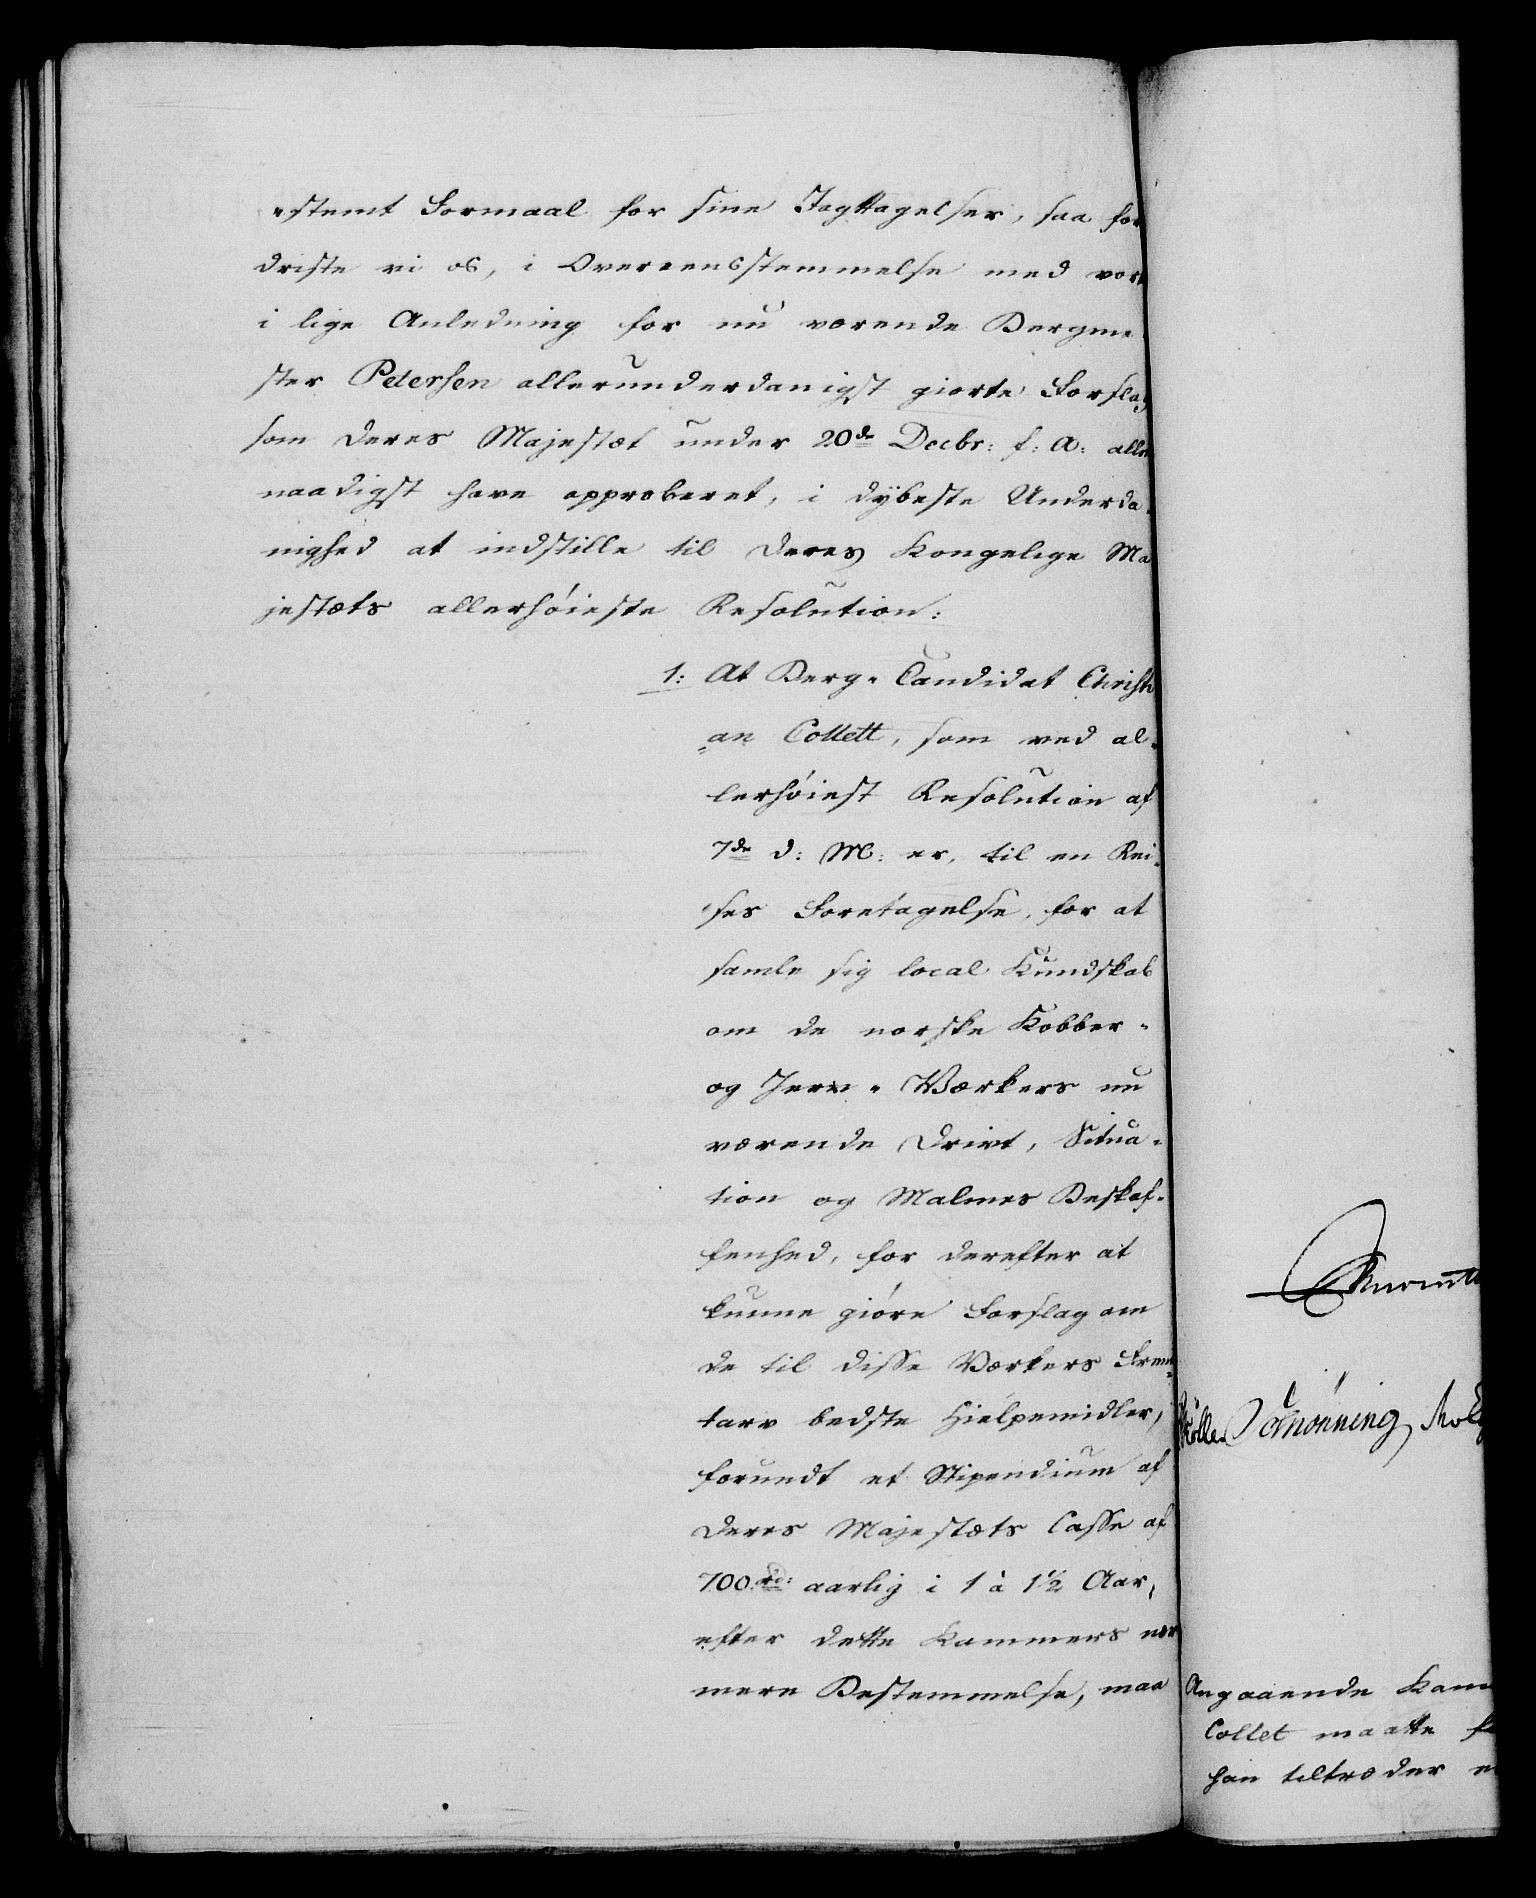 "stemt Formaal for sine Iagttagelser, saa for
driste vi os, i Overeensstemmelse med vort
i lige Anledning for nu værende Bergme
ster Petersen allerunderdanigst giorte Forslag
som Deres Majestæt under 20de Decbr: f: A: aller
naadigst have approberet, i dÿbeste Underda-
nighed at indstille til Deres Kongelige Ma
jestæts allerhøieste Resolution:
1: At Berg- Candidat Christi
=an Collett, som ved al-
lerhøiest Resolution af
7de d: M: er, til en Rei-
ses Foretagelse, for at
samle sig local Kundskab
om de norske Kobber-
og Jern- Værkers nu
værende Drivt, Situa-
tion og Malmes Beskaf-
fenhed, for derefter at
kunne giøre Forslag om
de til disse Værkers Frem-
tarv bedste Hielpemidler,
forundt et Stipendium af
Deres Majestæts Casse af
700 rd: aarlig i 1 à 1½ Aar,
efter dette Kammers nær
mere Bestemmelse, maa
Angaaende Kam
Collet maatte
han tiltræder